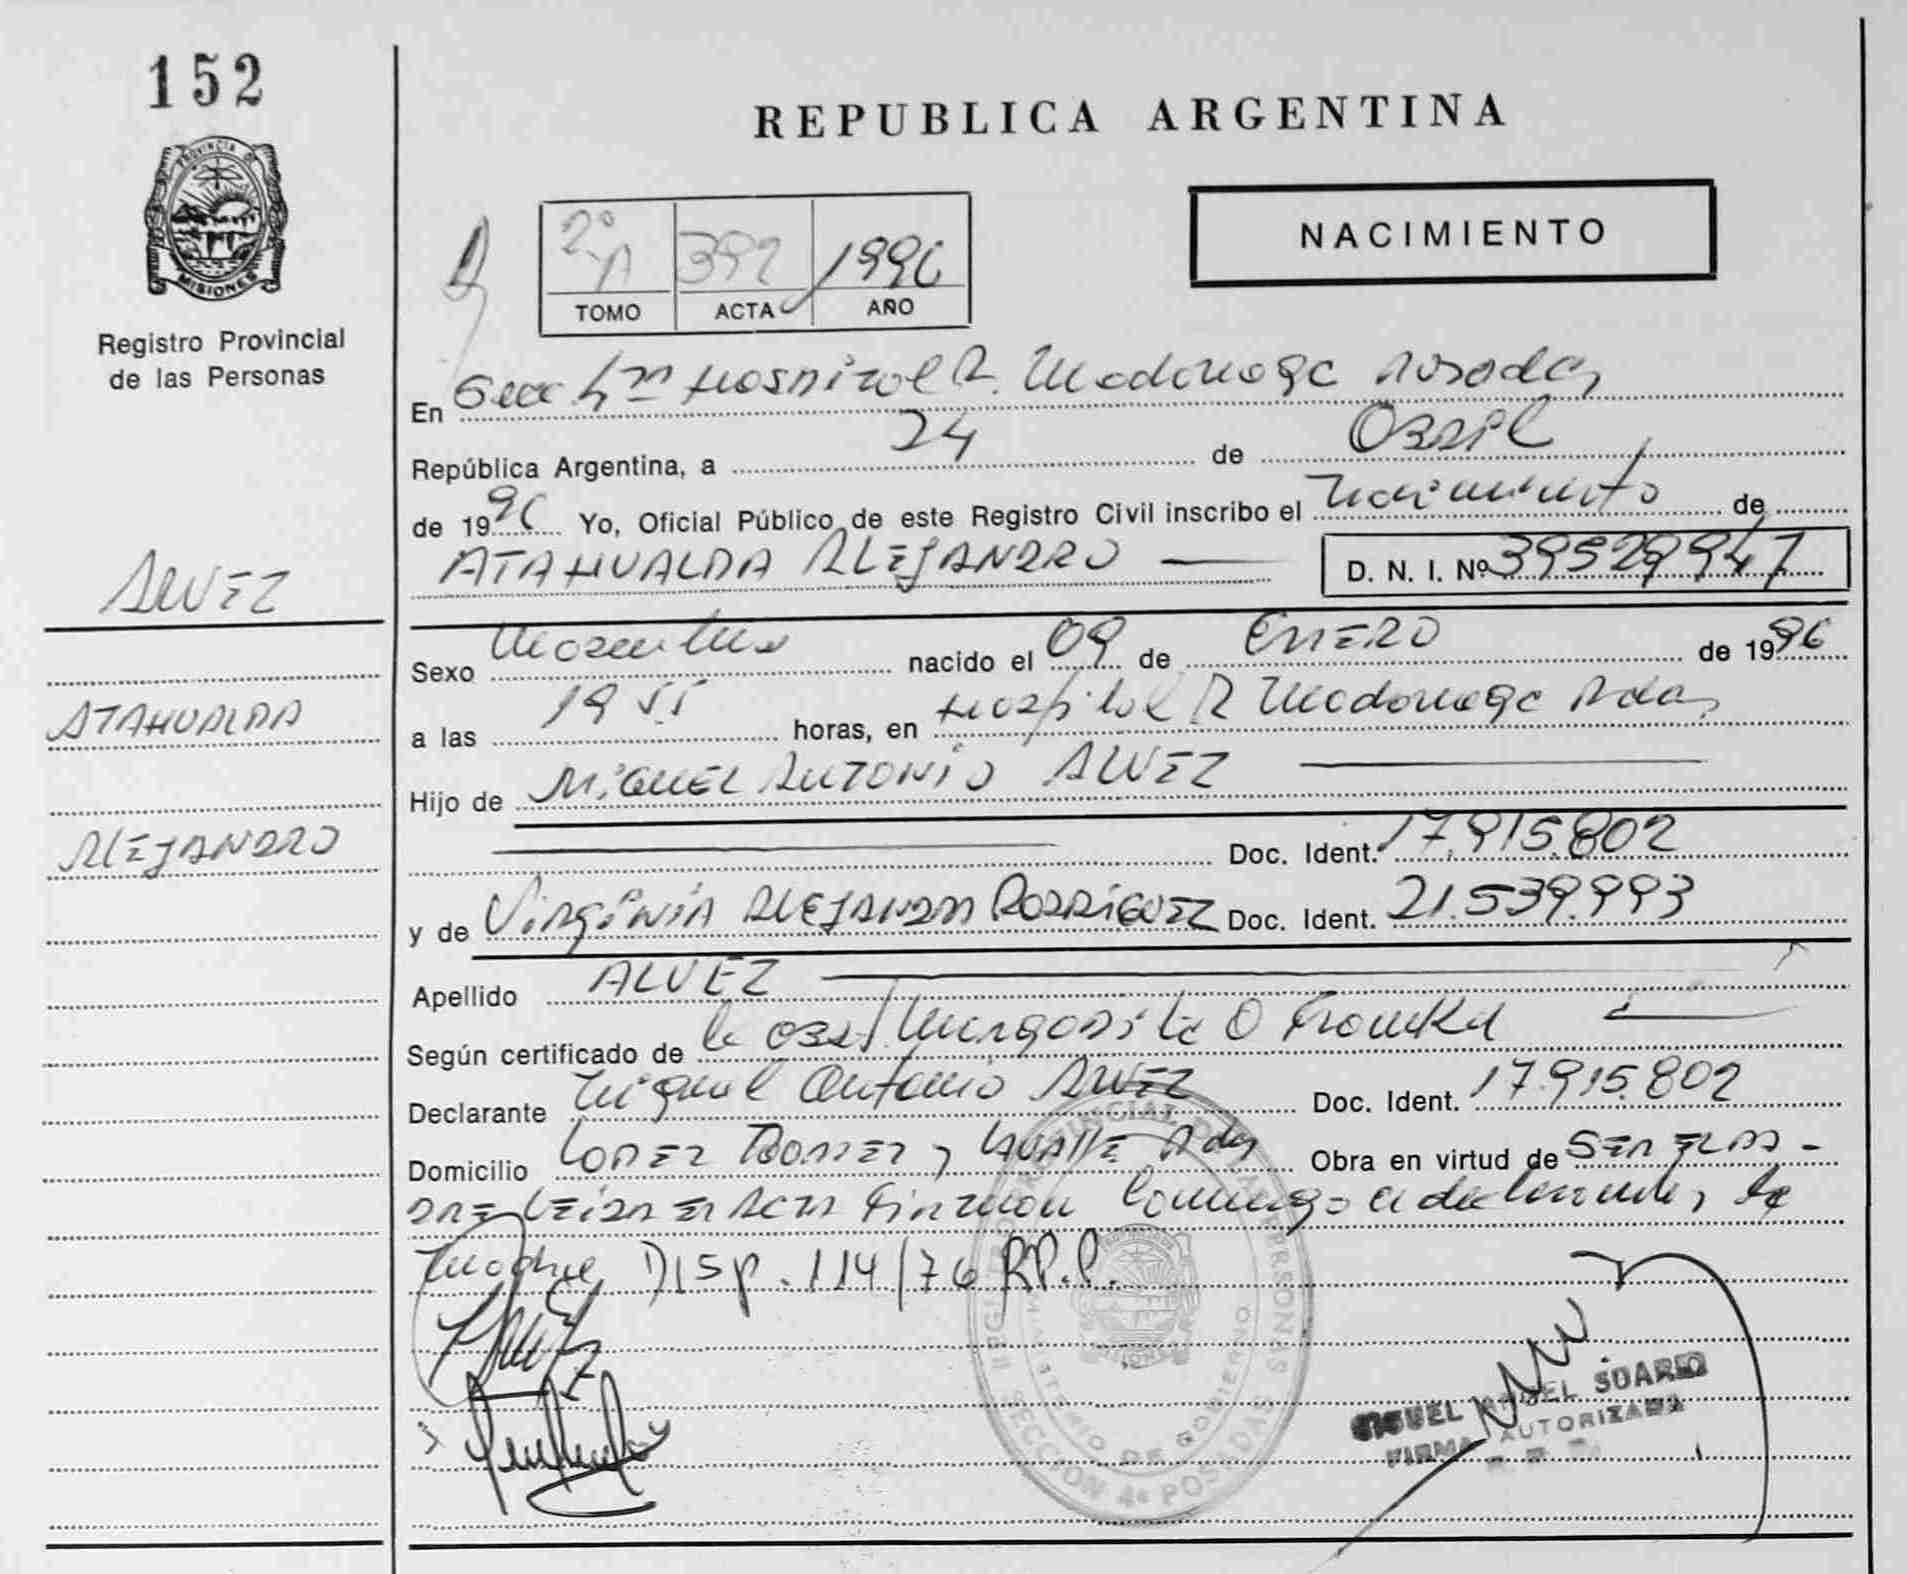 152
PROVINCIA DE
MISIONES
Registro Provincial
de las Personas
ALVEZ
ATAHUALPA
ALEJANDRO
REPUBLICA ARGENTINA
NACIMIENTO
2º A 392 1996
TOMO ACTA AÑO
En Hospital R. Madariaga Posadas
República Argentina, a 24 de Abril
de 1996 Yo, Oficial Público de este Registro Civil inscribo el Nacimiento de
ATAHUALPA ALEJANDRO D. N. I. Nº 39529947
Sexo Masculino nacido el 09 de ENERO de 1996
a las 19 55 horas, en Hospital R Madariaga Pdas
Hijo de MIGUEL ANTONIO ALVEZ
Doc. Ident. 17.915.802
y de VIRGINIA ALEJANDRA RODRIGUEZ Doc. Ident. 21.539.993
Apellido ALVEZ
Según certificado de la Obst Margarita O
Declarante Miguel Antonio ALVEZ Doc. Ident. 17.915.802
Domicilio LOPEZ TORRES y Pdas Obra en virtud de SER EL PA-
DRE LEIDA EL ACTA Firman Conmigo el declarante, la
Madre DISP. 114/76 R.P.P.
REGISTRO PROVINCIAL DE LAS PERSONAS
MINISTERIO DE GOBIERNO
SECCION 4ª POSADAS
MIGUEL ANGEL SUAREZ
FIRMA AUTORIZADA